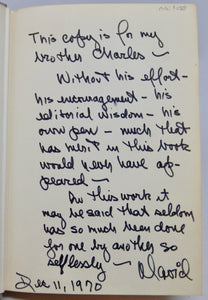 This copy is for my
brother Charles —
Without his effort –
his encouragement – his
editorial wisdom – his
own pen – much that
has merit in this book
would never have ap-
peared —
In this work it
may be said that seldom
has so much been done
for one by another so
selflessly — David
Dec 11, 1970